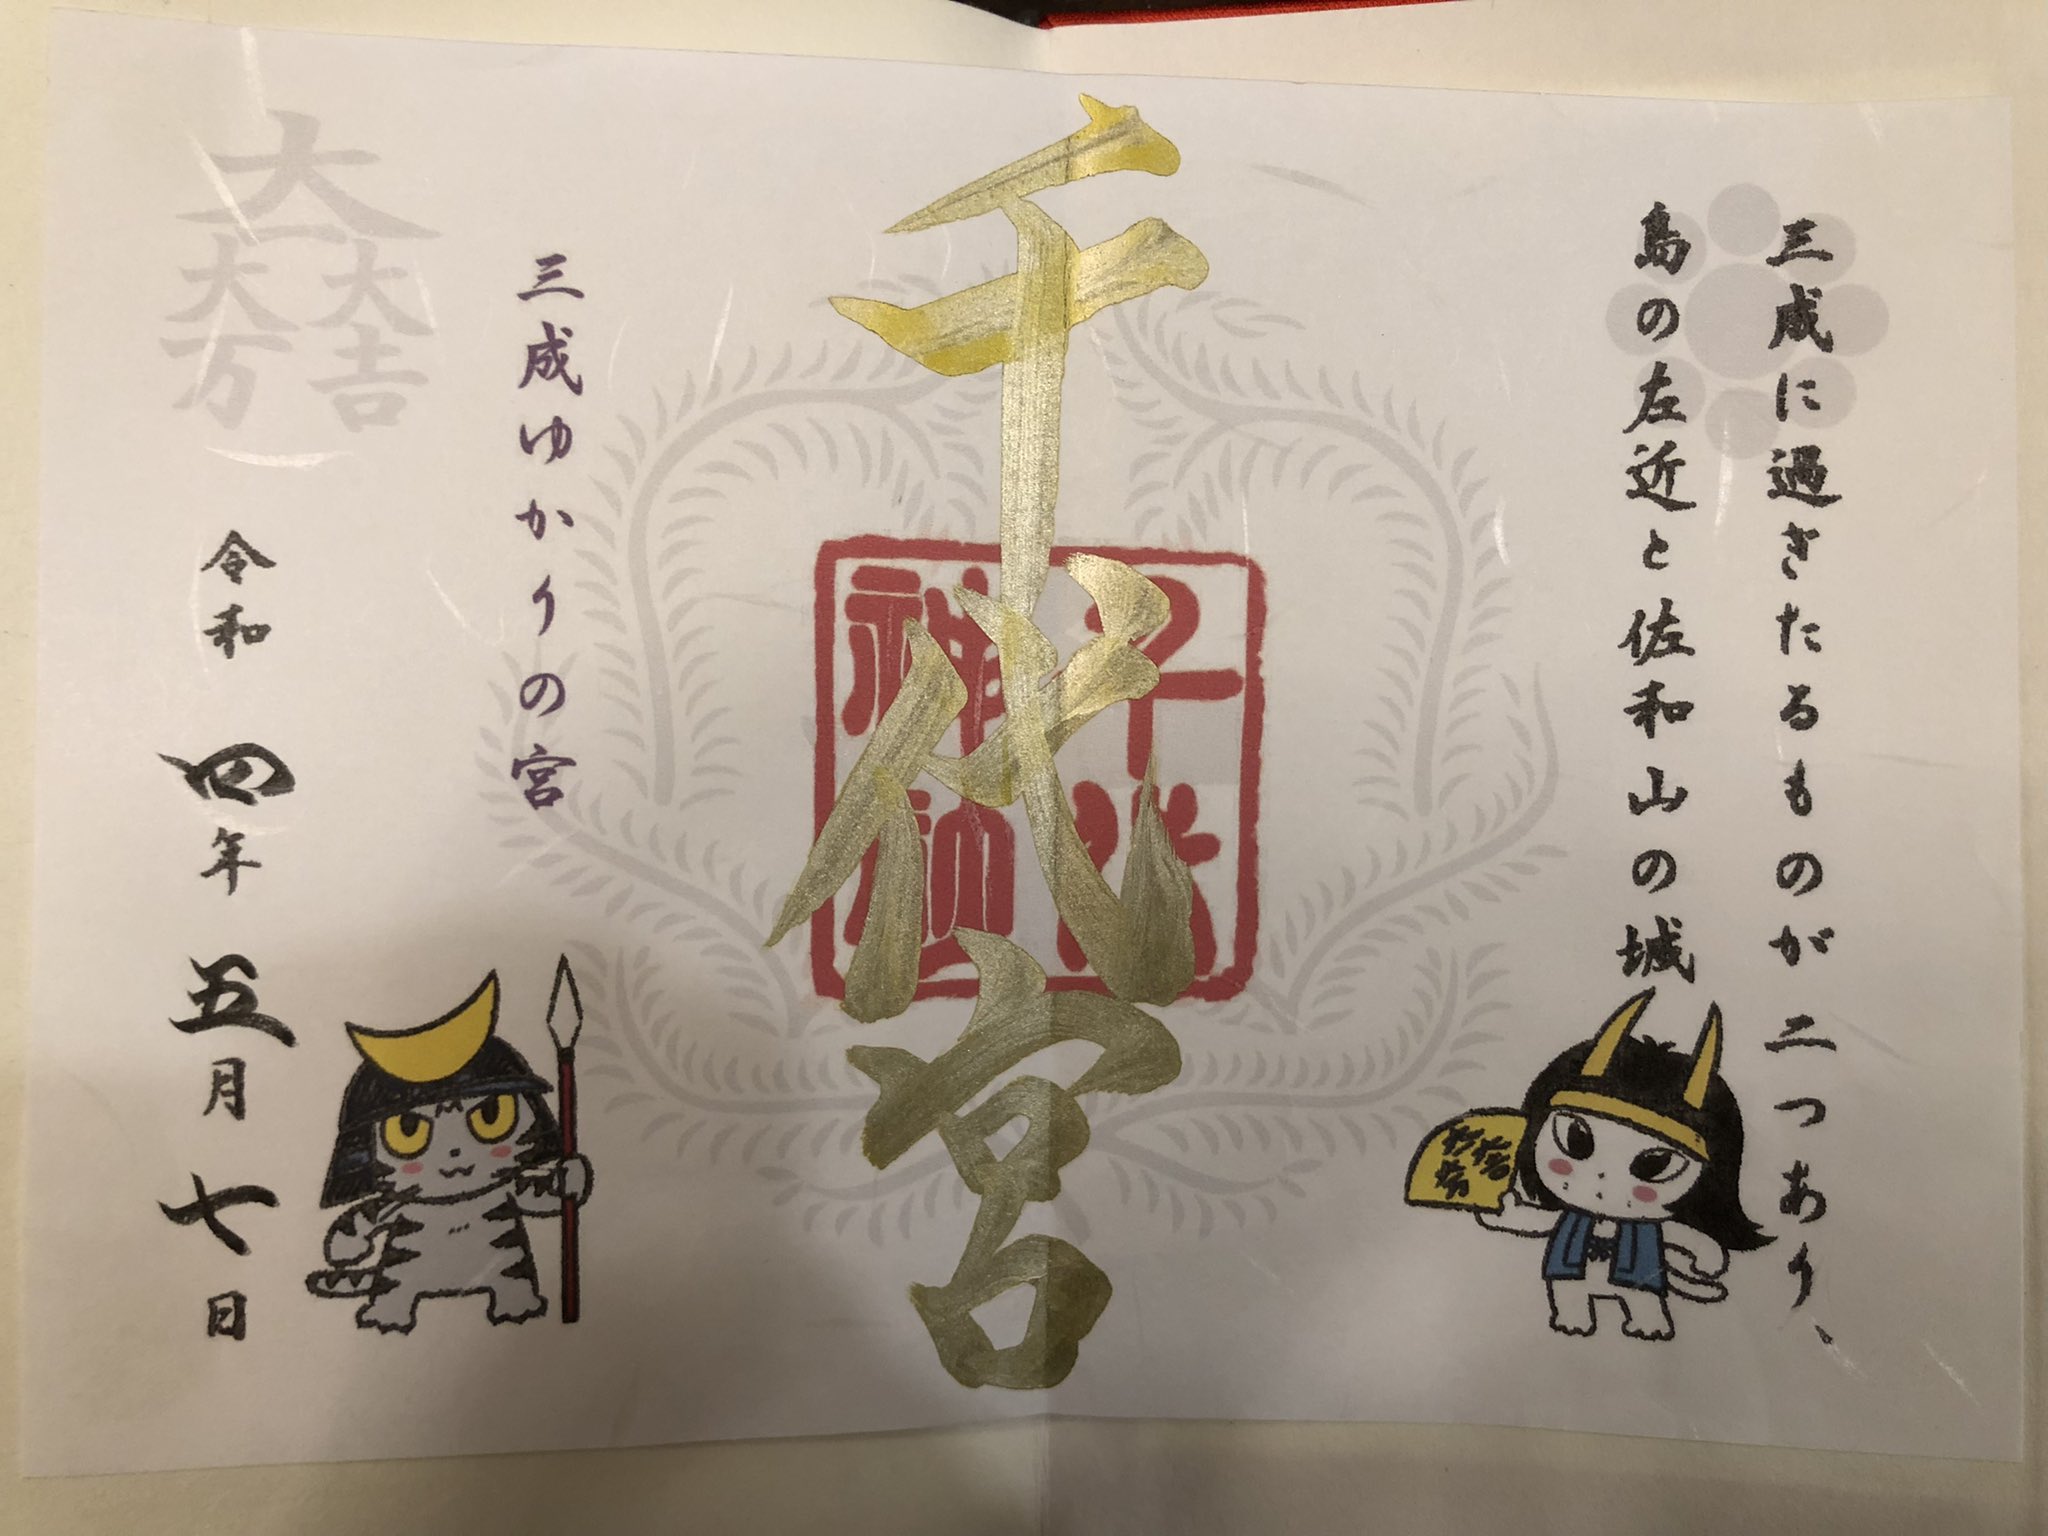 三成に過ぎたるものが二つあり、
島の左近と佐和山の城
千代宮
千代
神社
三成ゆかりの宮
大
大吉
大万
令和四年五月七日